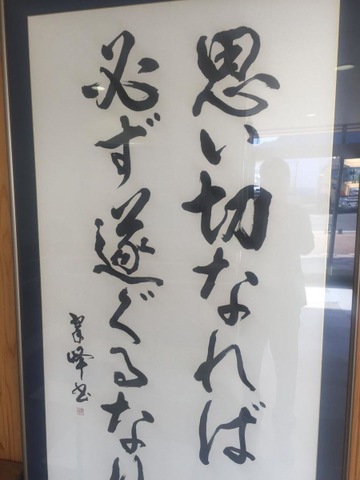 思い切なれば
必ず遂ぐるなり
峰書